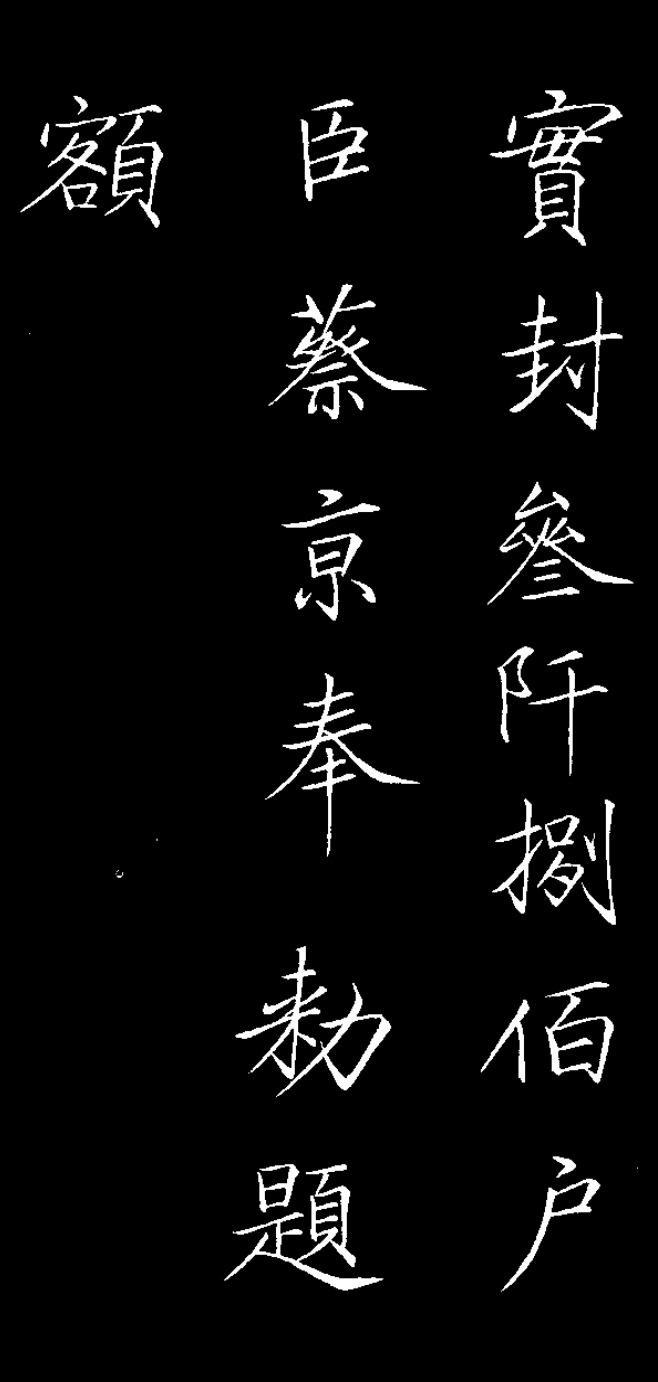 實封參阡捌佰户
臣蔡京奉勑題
額